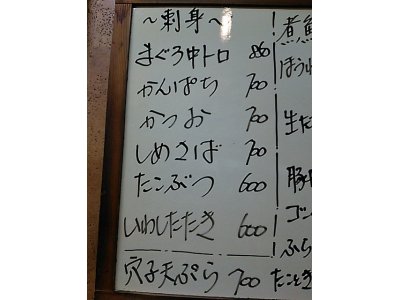 ～刺身～
まぐろ中トロ 860
かんぱち 700
かつお 700
しめさば 700
たこぶつ 600
いわしたたき 600
穴子天ぷら 700
煮魚
ほうれ
生た
豚
ゴン
ふら
たこときゅ